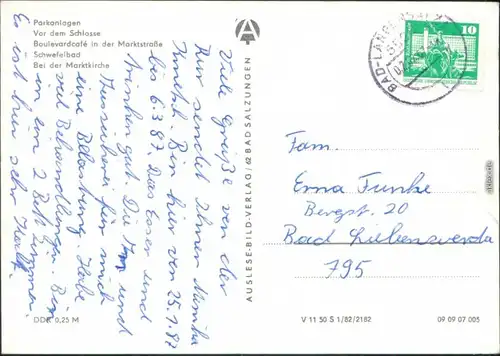 Parkanlagen
Vor dem Schlosse
Boulevardcafé in der Marktstraße
Schwefelbad
Bei der Marktkirche
Viele Grüße von der
Kur sendet Ihnen Monika
Bin hier vom 25.1.87
bis 6.3.87. Das Essen und
Trinken gut. Die und
für mich
eine Belastung. Habe
viel Behandlungen. Bin
in ein 2 Bettzimmer.
Es ist hier sehr
DDR 0,25 M
AUSLESE-BILD-VERLAG / 62 BAD SALZUNGEN
BAD LANGENSALZA
10
Fam.
Erna Funke
Bergst. 20
Bad Liebenwerda
795
V 11 50 S 1/82/2182
09 09 07 005